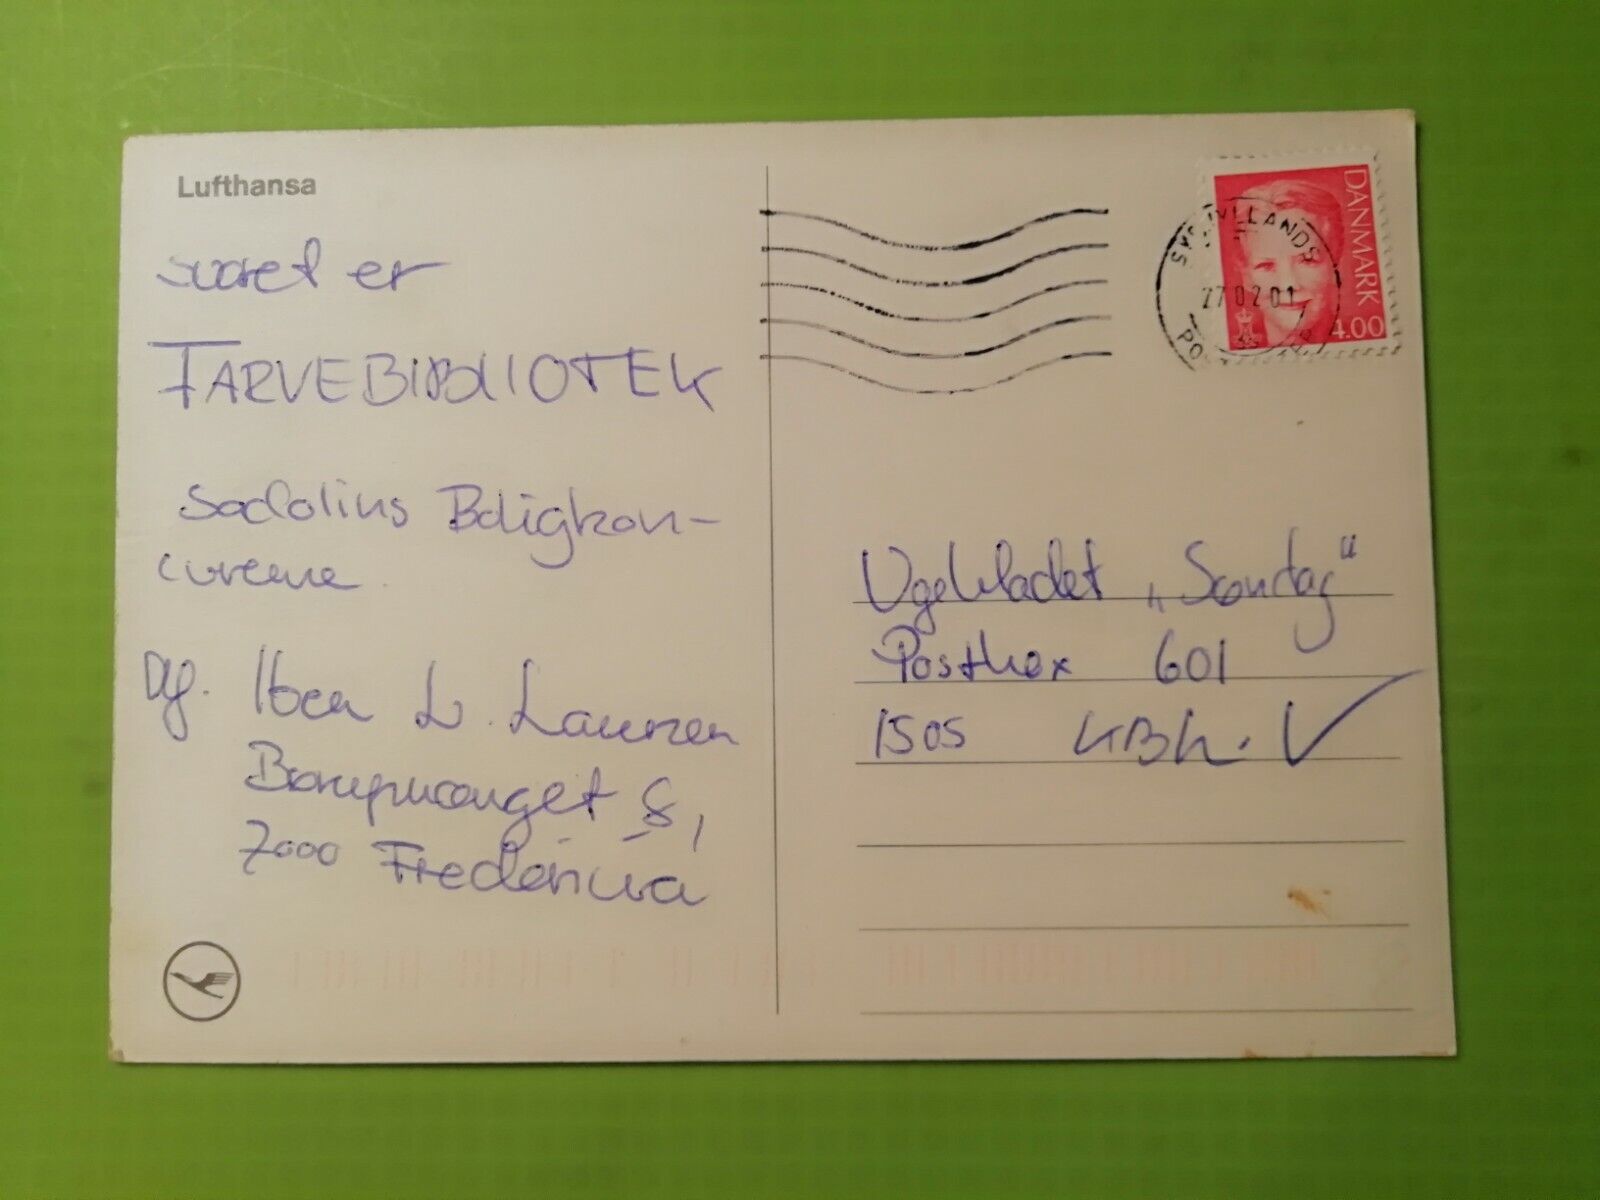 Lufthansa
svaret er
FARVEBIBLIOTEK
Sadolins Boligkon-
curence.
Afs. Iben L. Laursen
8,
7000 Fredericia
DANMARK
4.00
SYDJYLLANDS
27 02 01
Ugebladet „Søndag“
Postbox 601
1505 KBh. V